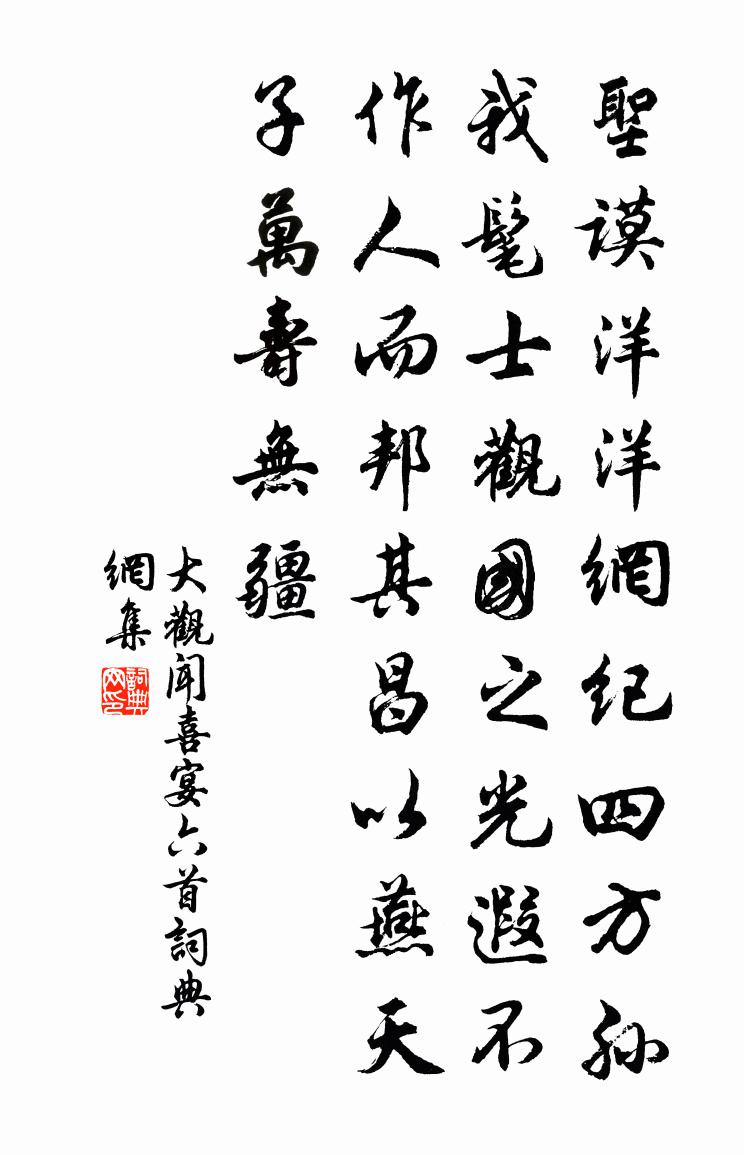 聖謨洋洋綱紀四方烝
我髦士觀國之光遐不
作人而邦其昌以燕天
子萬壽無疆
大觀聞喜宴六首詞典
網集
詞典
网印